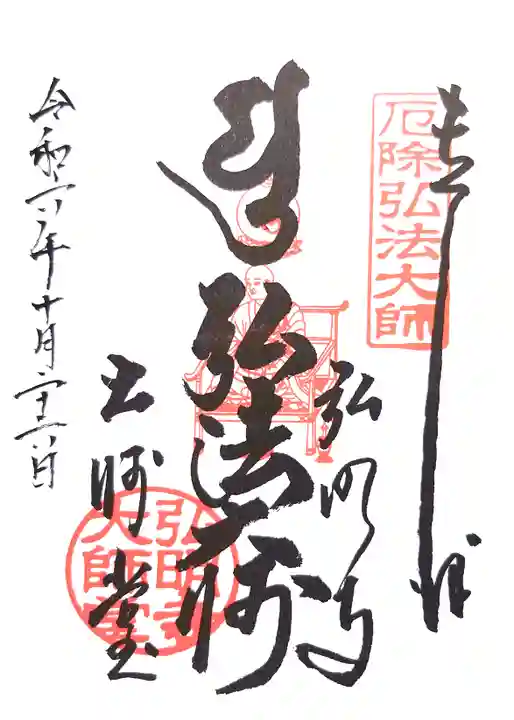 奉拝
厄除弘法大師
弘明寺
弘法大師
大師堂
弘明寺
大師堂
令和六年十月二十六日